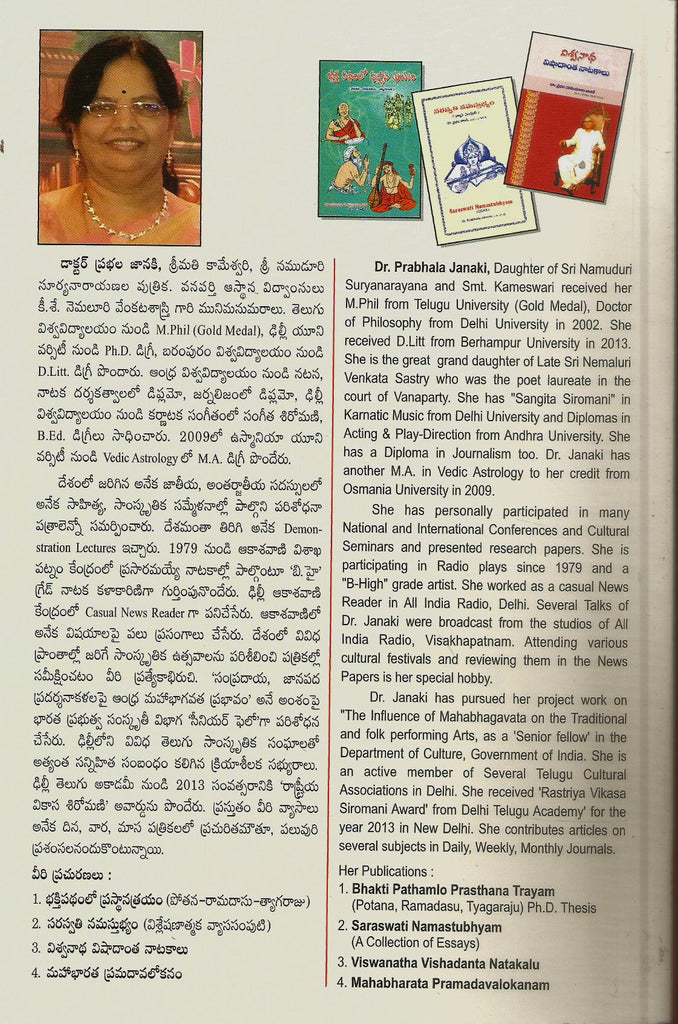 భక్తి పథంలో ప్రస్థాన త్రయం
సరస్వతి నమస్తుభ్యం
Saraswati Namastubhyam
విశ్వనాథ
విషాదాంత నాటకాలు
డాక్టర్ ప్రభల జానకి, శ్రీమతి కామేశ్వరి, శ్రీ నముడూరి
సూర్యనారాయణల పుత్రిక. వనపర్తి ఆస్థాన విద్వాంసులు
కీ.శే. నెమలూరి వేంకటశాస్త్రి గారి మునిమనుమరాలు. తెలుగు
విశ్వవిద్యాలయం నుండి M.Phil (Gold Medal), ఢిల్లీ యూని
వర్సిటీ నుండి Ph.D. డిగ్రీ, బరంపురం విశ్వవిద్యాలయం నుండి
D.Litt. డిగ్రీ పొందారు. ఆంధ్ర విశ్వవిద్యాలయం నుండి నటన,
నాటక దర్శకత్వాలలో డిప్లమో, జర్నలిజంలో డిప్లమో, ఢిల్లీ
విశ్వవిద్యాలయం నుండి కర్ణాటక సంగీతంలో సంగీత శిరోమణి,
B.Ed. డిగ్రీలు సాధించారు. 2009లో ఉస్మానియా యూని
వర్సిటీ నుండి Vedic Astrology లో M.A. డిగ్రీ పొందేరు.
దేశంలో జరిగిన అనేక జాతీయ, అంతర్జాతీయ సదస్సులలో
అనేక సాహిత్య, సాంస్కృతిక సమ్మేళనాల్లో పాల్గొని పరిశోధనా
పత్రాలెన్నో సమర్పించారు. దేశమంతా తిరిగి అనేక Demon-
stration Lectures ఇచ్చారు. 1979 నుండి ఆకాశవాణి విశాఖ
పట్నం కేంద్రంలో ప్రసారమయ్యే నాటకాల్లో పాల్గొంటూ 'బి.హై'
గ్రేడ్ నాటక కళాకారిణిగా గుర్తింపునొందేరు. ఢిల్లీ ఆకాశవాణి
కేంద్రంలో Casual News Reader గా పనిచేసేరు. ఆకాశవాణిలో
అనేక విషయాలపై పలు ప్రసంగాలు చేసేరు. దేశంలో వివిధ
ప్రాంతాల్లో జరిగే సాంస్కృతిక ఉత్సవాలను పరిశీలించి పత్రికల్లో
సమీక్షించటం వీరి ప్రత్యేకాభిరుచి. 'సంప్రదాయ, జానపద
ప్రదర్శనాకళలపై ఆంధ్ర మహాభాగవత ప్రభావం' అనే అంశంపై
భారత ప్రభుత్వ సంస్కృతీ విభాగ 'సీనియర్ ఫెలో'గా పరిశోధన
చేసేరు. ఢిల్లీలోని వివిధ తెలుగు సాంస్కృతిక సంఘాలతో
అత్యంత సన్నిహిత సంబంధం కలిగిన క్రియాశీలక సభ్యురాలు.
ఢిల్లీ తెలుగు అకాడమీ నుండి 2013 సంవత్సరానికి 'రాష్ట్రీయ
వికాస శిరోమణి' అవార్డును పొందేరు. ప్రస్తుతం వీరి వ్యాసాలు
అనేక దిన, వార, మాస పత్రికలలో ప్రచురితమౌతూ, పలువురి
ప్రశంసలనందుకొంటున్నాయి.
వీరి ప్రచురణలు :
1. భక్తిపథంలో ప్రస్థానత్రయం (పోతన-రామదాసు-త్యాగరాజు)
2. సరస్వతి నమస్తుభ్యం (విశ్లేషణాత్మక వ్యాససంపుటి)
3. విశ్వనాథ విషాదాంత నాటకాలు
4. మహాభారత ప్రమదావలోకనం
Dr. Prabhala Janaki, Daughter of Sri Namuduri
Suryanarayana and Smt. Kameswari received her
M.Phil from Telugu University (Gold Medal), Doctor
of Philosophy from Delhi University in 2002. She
received D.Litt from Berhampur University in 2013.
She is the great grand daughter of Late Sri Nemaluri
Venkata Sastry who was the poet laureate in the
court of Vanaparty. She has "Sangita Siromani" in
Karnatic Music from Delhi University and Diplomas in
Acting & Play-Direction from Andhra University. She
has a Diploma in Journalism too. Dr. Janaki has
another M.A. in Vedic Astrology to her credit from
Osmania University in 2009.
She has personally participated in many
National and International Conferences and Cultural
Seminars and presented research papers. She is
participating in Radio plays since 1979 and a
"B-High" grade artist. She worked as a casual News
Reader in All India Radio, Delhi. Several Talks of
Dr. Janaki were broadcast from the studios of All
India Radio, Visakhapatnam. Attending various
cultural festivals and reviewing them in the News
Papers is her special hobby.
Dr. Janaki has pursued her project work on
"The Influence of Mahabhagavata on the Traditional
and folk performing Arts, as a 'Senior fellow' in the
Department of Culture, Government of India. She is
an active member of Several Telugu Cultural
Associations in Delhi. She received 'Rastriya Vikasa
Siromani Award' from Delhi Telugu Academy' for the
year 2013 in New Delhi. She contributes articles on
several subjects in Daily, Weekly, Monthly Journals.
Her Publications :
1. Bhakti Pathamlo Prasthana Trayam
(Potana, Ramadasu, Tyagaraju) Ph.D. Thesis
2. Saraswati Namastubhyam
(A Collection of Essays)
3. Viswanatha Vishadanta Natakalu
4. Mahabharata Pramadavalokanam